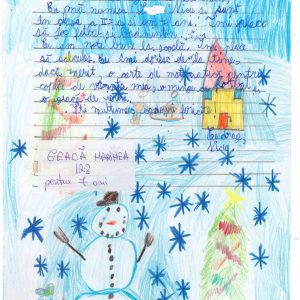 Eu mă numesc Nicu și sunt
în clasa a II-a și am 7 ani. Îmi place
să joc fotbal și badminton.
Eu am note bune la școală, îmi place
să calculez. Eu îmi doresc de la tine,
dacă merit, o carte de matematică pentru
copii de vârsta mea, o minge de fotbal și
o geacă de
Îți mulțumesc,
Cu drag,
Nicu
GEACĂ MĂRIMEA
128
pentru 7 ani